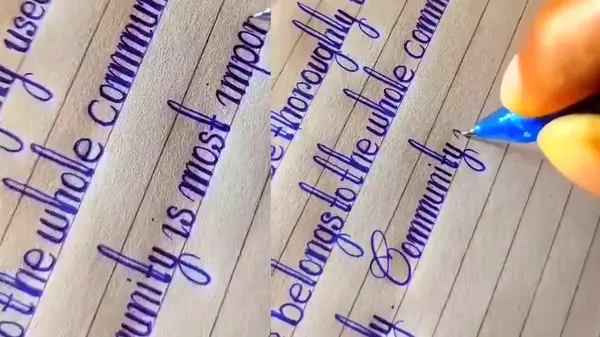 y used
o the whole commun
unity is most impor
e thoroughly
belongs to the whole comm
ly. Community